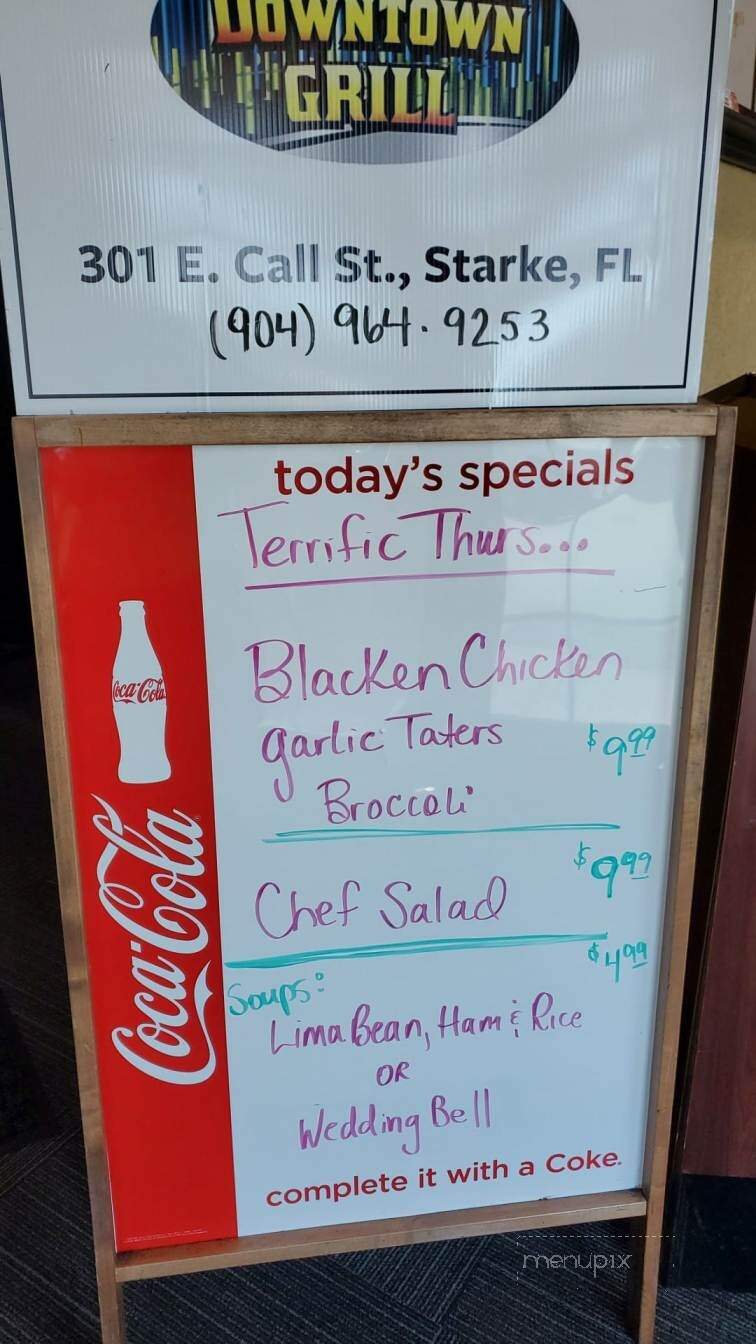 DOWNTOWN
GRILL
301 E. Call St., Starke, FL
(904) 964.9253
today's specials
Terrific Thurs...
Blacken Chicken
garlic Taters $9.99
Broccoli
Chef Salad $9.99
Soups: $4.99
Lima Bean, Ham & Rice
OR
Wedding Bell
complete it with a Coke.
Coca-Cola
Coca-Cola
menupix